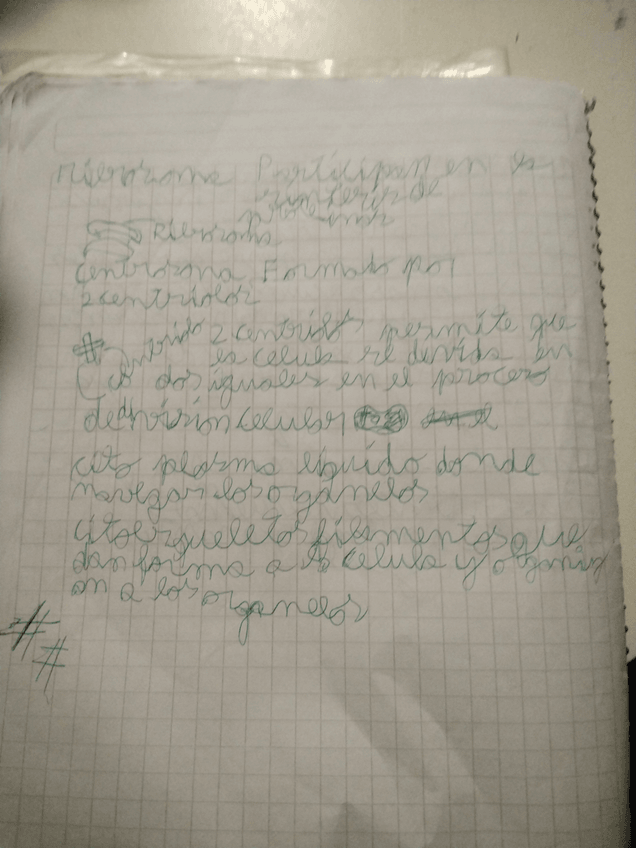 Riboroma Participan en la
sinterir de
proteinar
Riboroma
Centrozoma Formado por
2 centriolor
# 2 centriolor permite que
la celula re devida en
dor iguales en el procero
de divirion celular
cito plarma liquido donde
navegar los organelos
citoerqueletos filamentos que
dan forma a la celula y organiz
an a los organelos
#
#